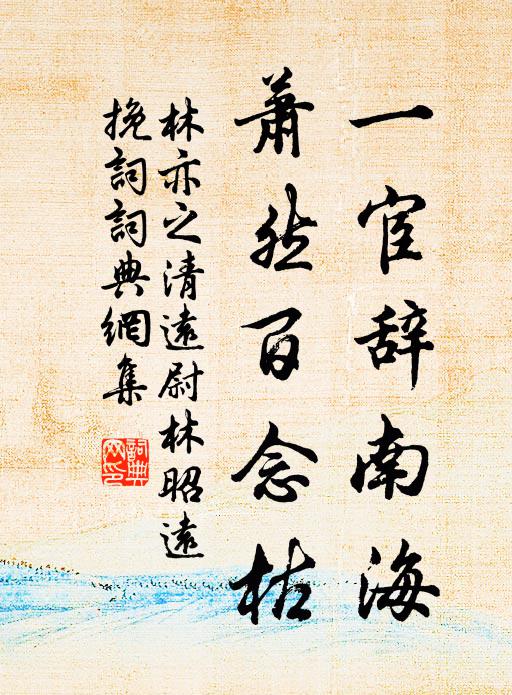 一官辞南海
萧然百念枯
林亦之清遠尉林昭遠
挽詞詞典網集
詞典网印